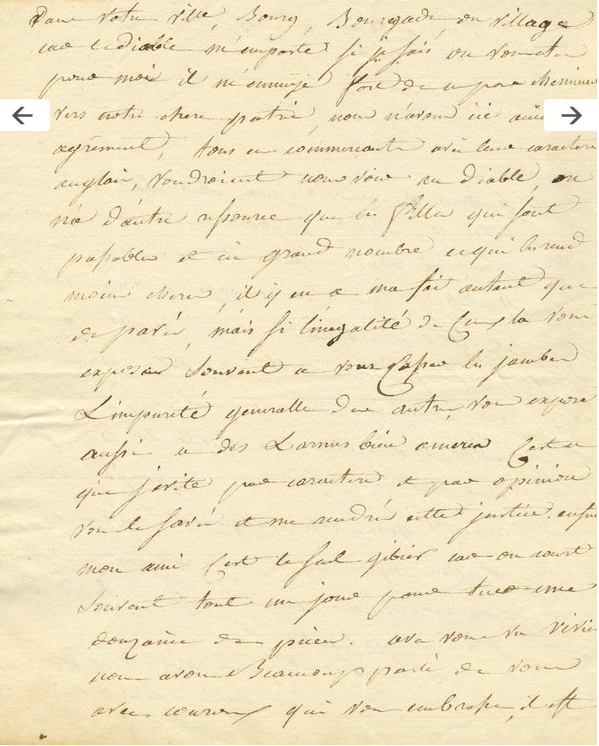 Dans votre ville, Bourg, Bourgade, ou village
car le diable m'emporte si je sais ou vous etes
pour moi il m'ennuye fort de ne pas cheminer
vers notre chere patrie, nous n'avons ici
agrément, tous ces commercants avec leur caractere
anglais, voudroient nous voir au diable, on
n'a d'autre ressource que les filles qui sont
passables et en grand nombre ce qui les rend
moins cheres, il y en a ma foi autant que
de pavés, mais si l'inegalité de ceux la vous
expose souvent a vous casser les jambes
L'impurité generalle des autres, vous expose
aussi a des Larmes bien ameres C'est ce
que j'evite par caractere et par opinion
vous le savés et me rendrés cette justice. enfin
mon ami C'est le seul gibier car on court
souvent tout un jour pour tuer une
douzaine de pieces.
nous avons Beaucoup parlé de vous
avec qui vous embrasse, il est